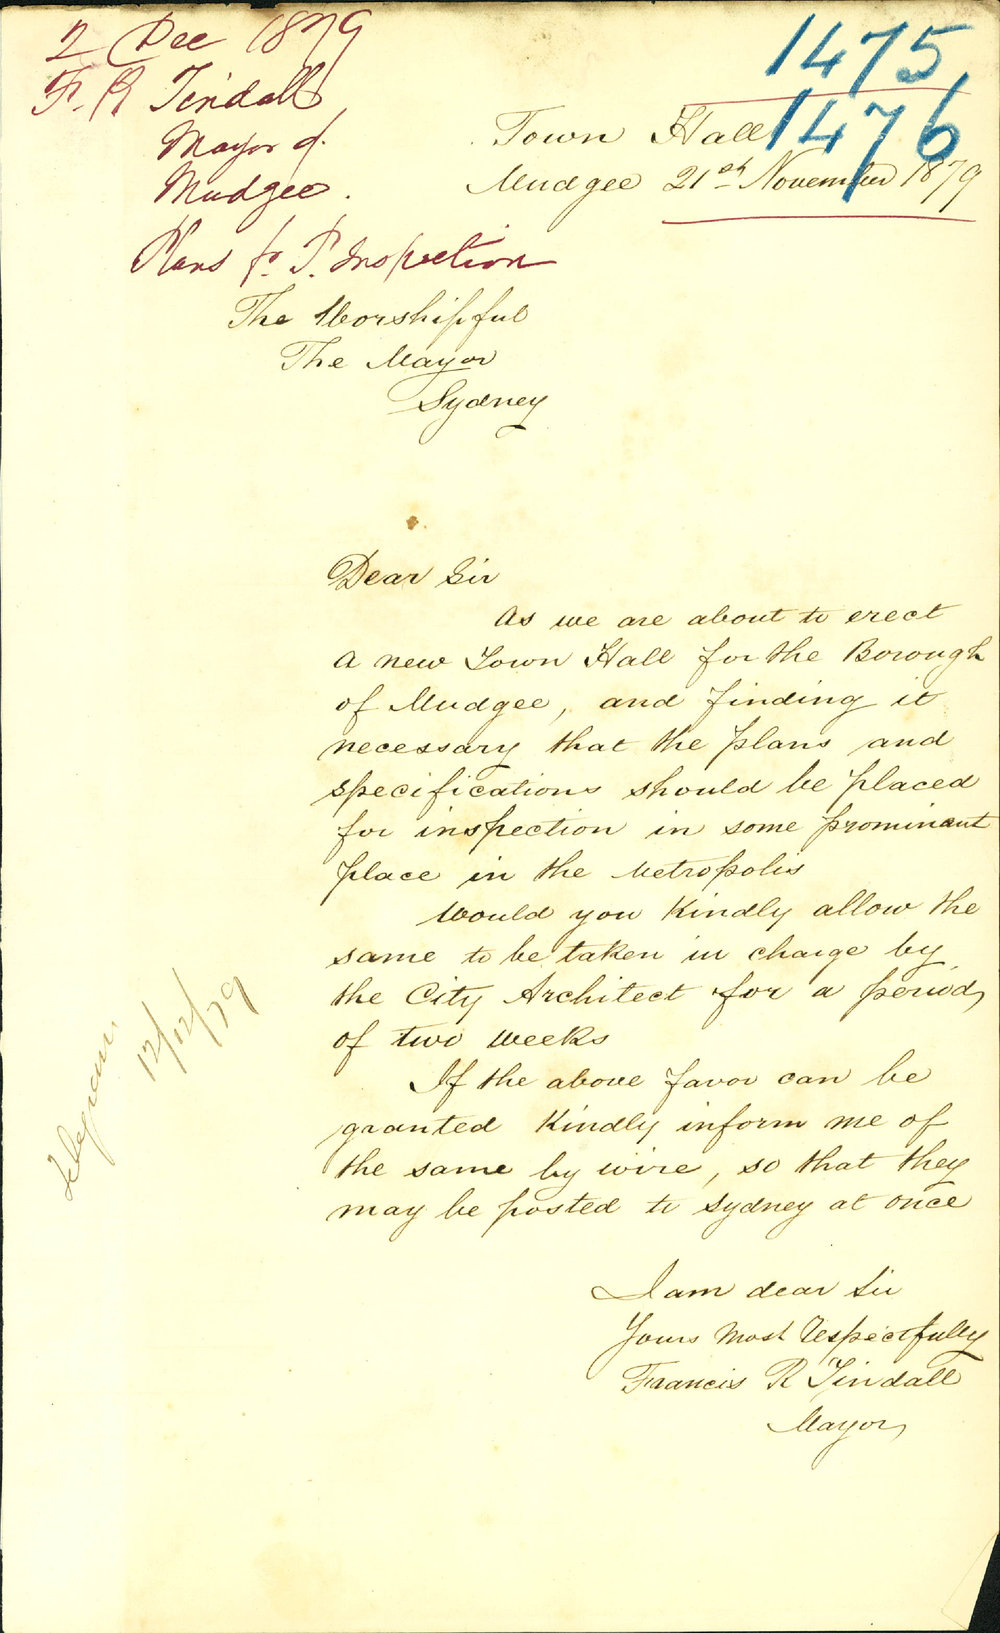 2 Dec 1879
F. R Tindall
Mayor of
Mudgee.
Plans fr P. Inspection
1475
1476
Town Hall
Mudgee 21st November 1879
The Worshipful
The Mayor
Sydney
Dear Sir
As we are about to erect
a new Town Hall for the Borough
of Mudgee, and finding it
necessary that the plans and
specifications should be placed
for inspection in some prominant
place in the Metropolis
Would you Kindly allow the
same to be taken in charge by
the City Architect for a period
of two weeks
If the above favor can be
granted Kindly inform me of
the same by wire, so that they
may be posted to Sydney at once
I am dear Sir
Yours Most Respectfully
Francis R Tindall
Mayor
Telegram
12/12/79